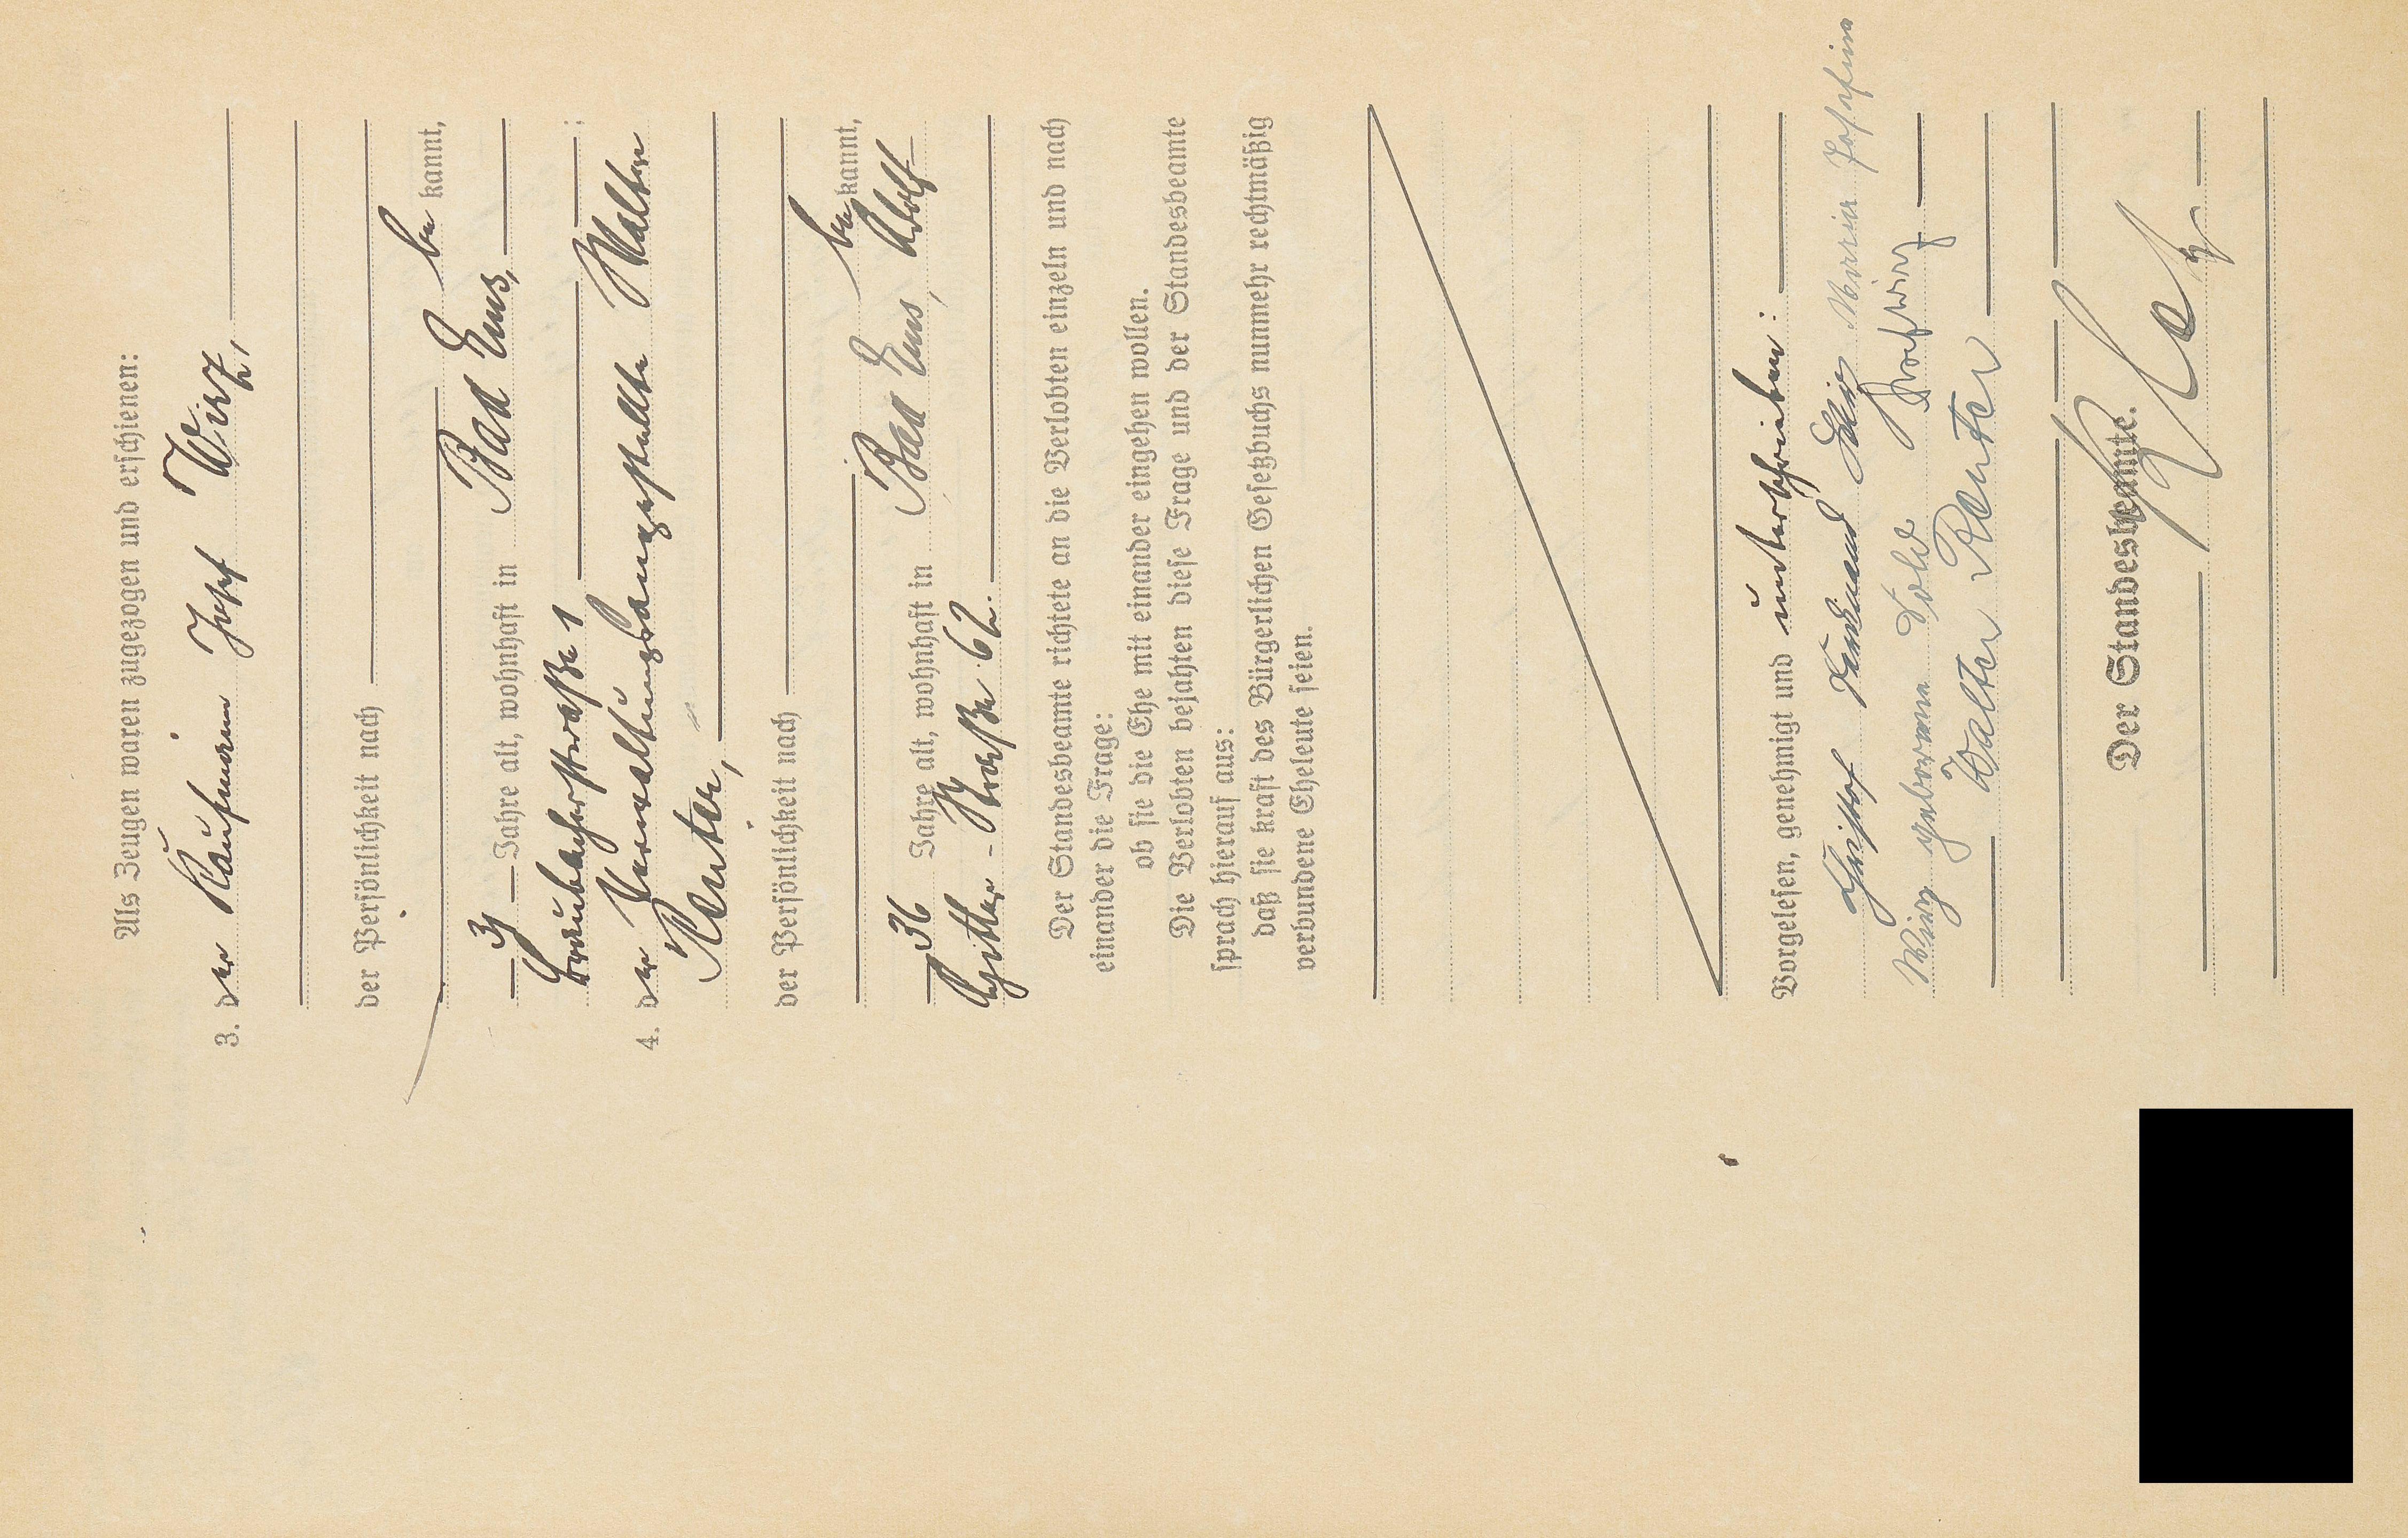 Als Zeugen waren zugezogen und erschienen:
3. der Kaufmann Josef Wirz,
der Persönlichkeit nach
be kannt,
Jahre alt, wohnhaft in Bad Ems,
Braubacherstraße 1 ;
4. der Verwaltungsangestellte Walter
Reuter,
der Persönlichkeit nach
be kannt,
36 Jahre alt, wohnhaft in Bad Ems, Adolf
Hitler-Straße 62.
Der Standesbeamte richtete an die Verlobten einzeln und nach
einander die Frage:
ob sie die Ehe mit einander eingehen wollen.
Die Verlobten bejahten diese Frage und der Standesbeamte
sprach hierauf aus:
daß sie kraft des Bürgerlichen Gesetzbuchs nunmehr rechtmäßig
verbundene Eheleute seien.
Vorgelesen, genehmigt und unterschrieben:
Ferdinand Maria
geborene
Walter Reuter
Der Standesbeamte.